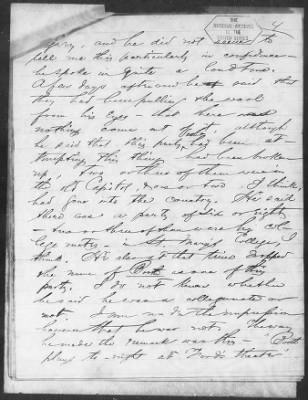 THE
NATIONAL ARCHIVES
OF THE
UNITED STATES
4
and he did not seem to
tell me this particularly in confidence—
he spoke in quite a loud tone.
A few days afterward he said that
they had been pulling the wool
from his eyes - that there was
nothing come of it, although
he said that this party had been at-
tempting this thing had been broke
up; two or three of them were in
the Old Capitol, & one or two, I think,
had gone into the country. He said
there was a party of six or eight
- two or three of them were his col-
lege mates - in St. Mary's College, I
think. He also at that time dropped
the name of Booth as one of this
party. I do not know whether
he said he was a collegemate or
not. I am under the impression
however that he was not. The way
he made the remark was this - Booth
plays to-night at Ford's theatre